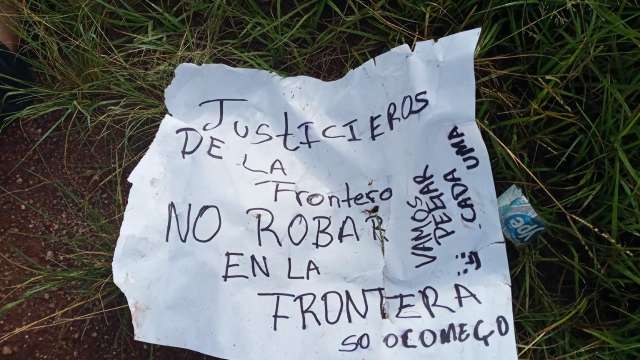 JUSTICIEROS
DE LA
Frontero
NO ROBAR
EN LA
FRONTERA
SO OCOMEÇO
VAMOS
PEGAR
CADA
UMA